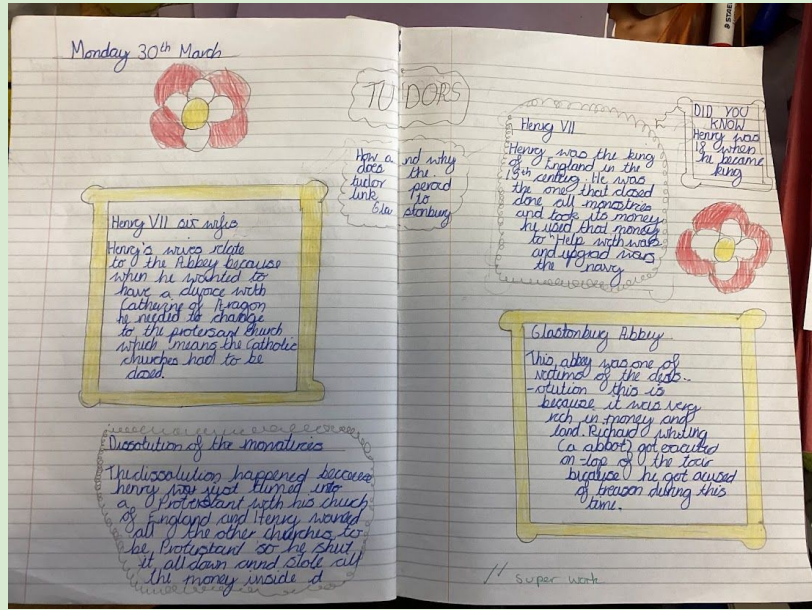 Monday 30th March
TUDORS
How and why
does the
tudor peroid
link to
Glastonbury
Henry VII six wifes
Henry's wives relate
to the Abbey because
when he wanted to
have a divorce with
Catherine of Aragon
he needed to change
to the protersant church
which means the Catholic
churches had to be
closed.
Dissolution of the monateries
The dissolution happened because
henry was just turned into
a Protestant with his church
of England and Henry wanted
all the other churches to
be Protustant so he shut
it all down annd stole all
the money inside
Henry VII
Henry was the king
of England in the
15th century. He was
the one that closed
done all monostries
and took its money
he used that money
to Help with wars
and upgrad
the navy
DID YOU
KNOW
Henry was
18 when
he became
king
Glastonbury Abbey
This abbey was one of
victims of the diss-
-olution this is
because it was very
rich in money and
land. Richard whiting
(a abbot) got executed
on-top of the tour
because he got acused
of treason during this
time.
// super work